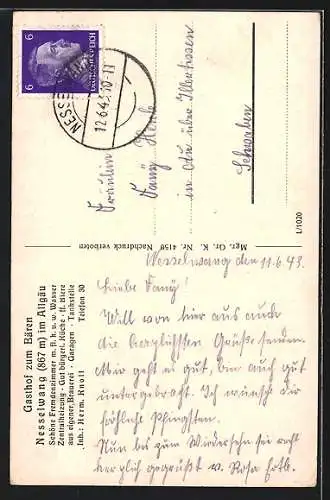 6 DEUTSCHES REICH 6
NESSELWANG
12.6.43.10-11
Fräulein
Fany Henle
in Au über Illertissen
Schwaben
L/1020
Mgr. Gr. K. Nr. 4150 Nachdruck verboten
Gasthof zum Bären
Nesselwang (867 m) im Allgäu
Schöne Fremdenzimmer m. fl. k. u. w. Wasser
Zentralheizung - Gut bürgerl. Küche - ff. Biere
aus eigener Brauerei - Garagen - Tankstelle
Inh.: Herm. Knoll Telefon 30
Nesselwang den 11.6.43.
Liebe Fany!
Will von hier aus auch
die herzlichsten Grüße senden.
Mir geht es gut, bin auch gut
untergebracht. Ich wünsche dir
fröhliche Pfingsten.
Nun bis zum Wiedersehn sei recht
herzlich gegrüßt v. Rosa